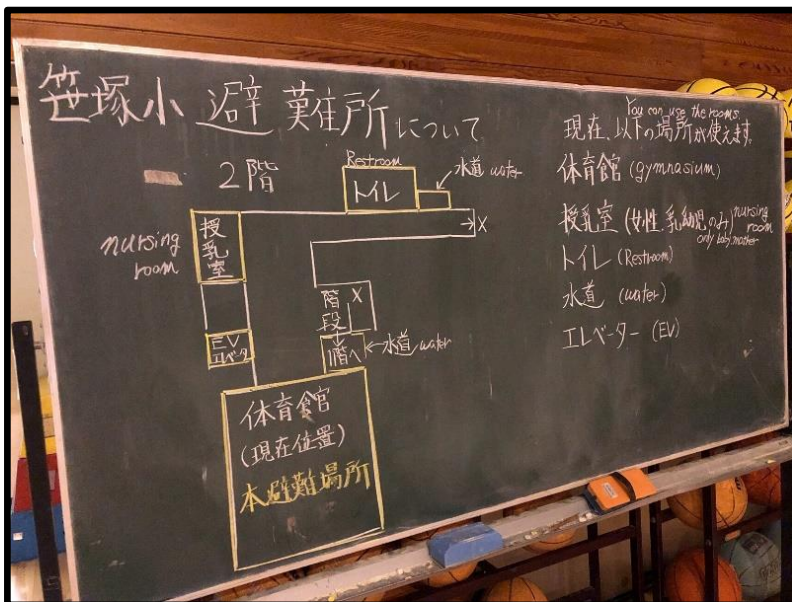 笹塚小避難所について
2階
Restroom
トイレ
水道 water
→X
授乳室
nursing room
階段
X
EV
エレベータ
1階へ
←水道 water
体育館
(現在位置)
本避難場所
You can use the rooms.
現在、以下の場所が使えます。
体育館 (gymnasium)
授乳室 (女性、乳幼児のみ) nursing room
only baby, mother
トイレ (Restroom)
水道 (water)
エレベーター (EV)